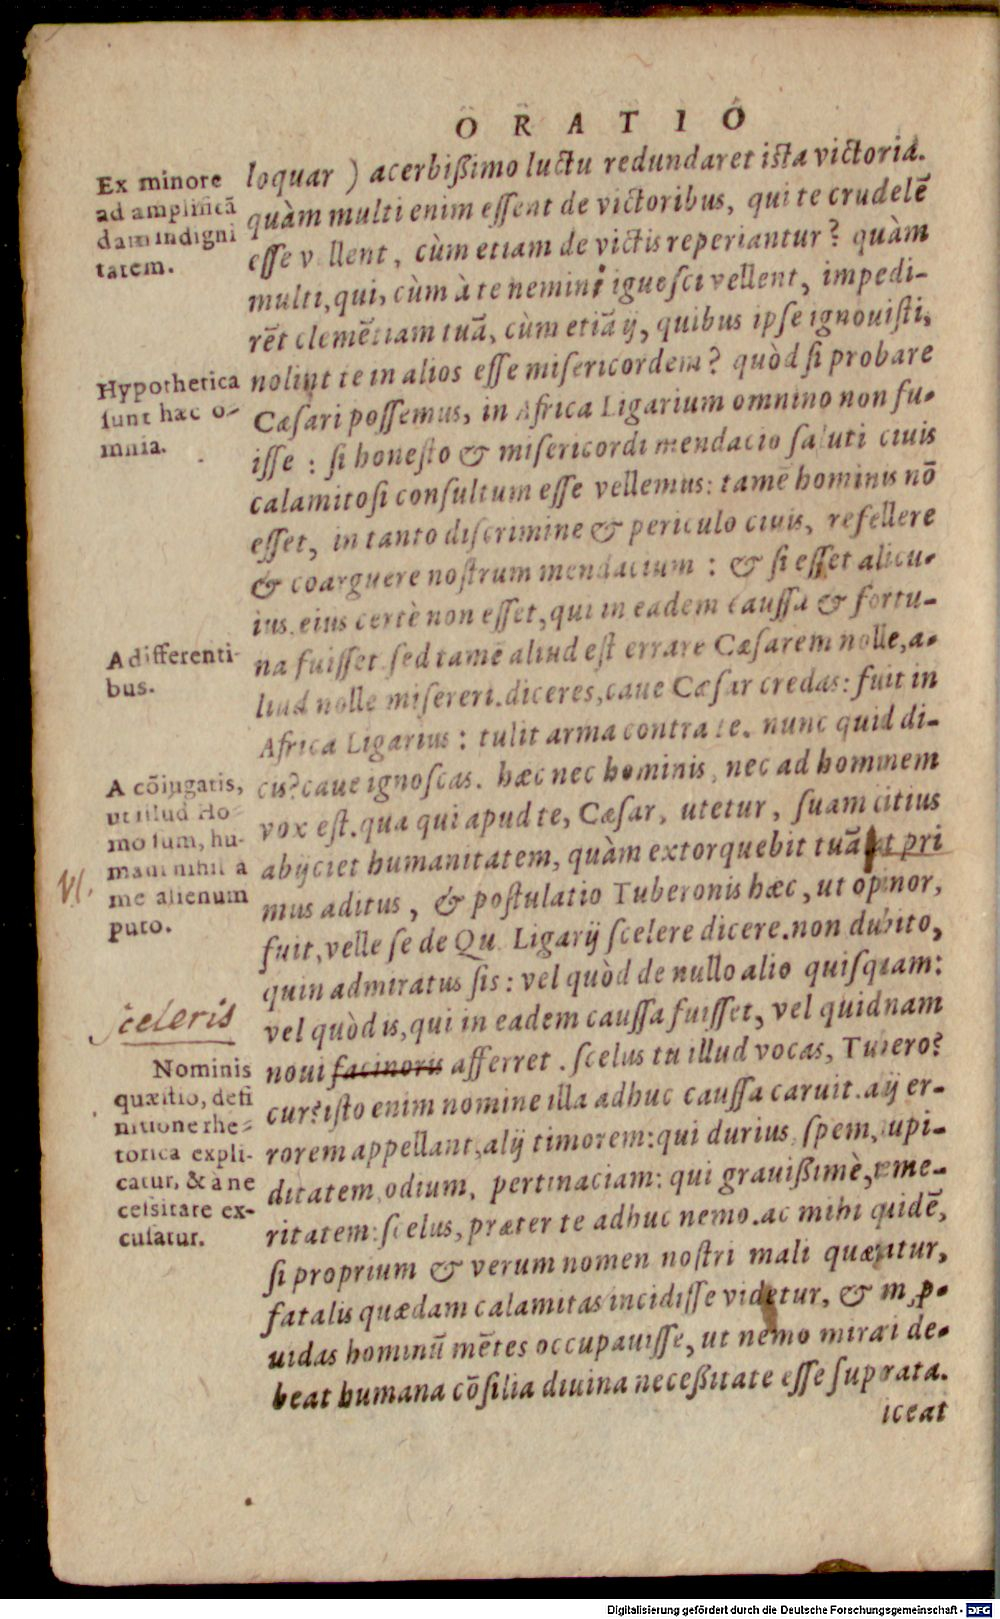 ORATIO
Ex minore
ad amplificā
dam indigni
tatem.
Hypothetica
sunt hæc o-
mnia.
A differenti-
bus.
A cōiugatis,
ut illud Ho-
mo sum, hu-
mani nihil à
me alienum
puto.
VI.
sceleris
Nominis
quæstio, defi
nitione rhe-
torica expli-
catur, & à ne
cessitate ex-
cusatur.
loquar ) acerbißimo luctu redundaret ista victoria.
quàm multi enim essent de victoribus, qui te crudelē
esse vellent, cùm etiam de victis reperiantur? quàm
multi, qui, cùm à te nemini ignosci vellent, impedi-
rēt clemētiam tuā, cùm etiā ij, quibus ipse ignouisti,
nolint te in alios esse misericordem? quòd si probare
Cæsari possemus, in Africa Ligarium omnino non fu-
isse : si honesto & misericordi mendacio saluti ciuis
calamitosi consultum esse vellemus: tamē hominis nō
esset, in tanto discrimine & periculo ciuis, refellere
& coarguere nostrum mendacium : & si esset alicu-
ius, eius certè non esset, qui in eadem caussa & fortu-
na fuisset. sed tamē aliud est errare Cæsarem nolle, a-
liud nolle misereri. diceres, caue Cæsar credas: fuit in
Africa Ligarius : tulit arma contra te. nunc quid di-
cis? caue ignoscas. hæc nec hominis, nec ad hominem
vox est. qua qui apud te, Cæsar, utetur, suam citius
abijciet humanitatem, quàm extorquebit tuā. at pri
mus aditus, & postulatio Tuberonis hæc, ut opinor,
fuit, velle se de Qu. Ligarij scelere dicere. non dubito,
quin admiratus sis : vel quòd de nullo alio quisquam:
vel quòd is, qui in eadem caussa fuisset, vel quidnam
noui facinoris afferret . scelus tu illud vocas, Tubero?
cur? isto enim nomine illa adhuc caussa caruit. aij er-
rorem appellant, alij timorem: qui durius, spem, cupi-
ditatem, odium, pertinaciam: qui grauißimè, teme-
ritatem: scelus, præter te adhuc nemo. ac mihi quidē,
si proprium & verum nomen nostri mali quæratur,
fatalis quædam calamitas incidisse videtur, & im p-
uidas hominū mētes occupauisse, ut nemo mirari de-
beat humana cōsilia diuina neceßitate esse suprata.
iceat
Digitalisierung gefördert durch die Deutsche Forschungsgemeinschaft - DFG